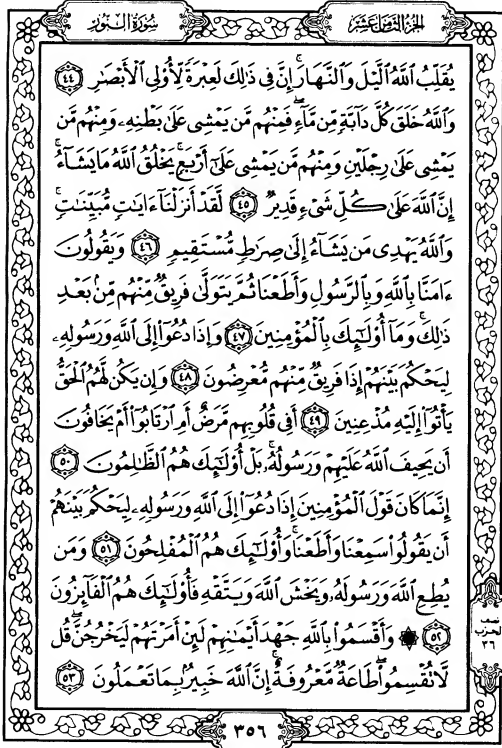 الجزء الثامن عشر
سورة النور
يُقَلِّبُ ٱللَّهُ ٱلَّيۡلَ وَٱلنَّهَارَۚ إِنَّ فِي ذَٰلِكَ لَعِبۡرَةٗ لِّأُوْلِي ٱلۡأَبۡصَٰرِ ٤٤
وَٱللَّهُ خَلَقَ كُلَّ دَآبَّةٖ مِّن مَّآءٖۖ فَمِنۡهُم مَّن يَمۡشِي عَلَىٰ بَطۡنِهِۦ وَمِنۡهُم مَّن
يَمۡشِي عَلَىٰ رِجۡلَيۡنِ وَمِنۡهُم مَّن يَمۡشِي عَلَىٰٓ أَرۡبَعٖۚ يَخۡلُقُ ٱللَّهُ مَا يَشَآءُۚ
إِنَّ ٱللَّهَ عَلَىٰ كُلِّ شَيۡءٖ قَدِيرٞ ٤٥ لَّقَدۡ أَنزَلۡنَآ ءَايَٰتٖ مُّبَيِّنَٰتٖۚ
وَٱللَّهُ يَهۡدِي مَن يَشَآءُ إِلَىٰ صِرَٰطٖ مُّسۡتَقِيمٖ ٤٦ وَيَقُولُونَ
ءَامَنَّا بِٱللَّهِ وَبِٱلرَّسُولِ وَأَطَعۡنَا ثُمَّ يَتَوَلَّىٰ فَرِيقٞ مِّنۡهُم مِّنۢ بَعۡدِ
ذَٰلِكَۚ وَمَآ أُوْلَٰٓئِكَ بِٱلۡمُؤۡمِنِينَ ٤٧ وَإِذَا دُعُوٓاْ إِلَى ٱللَّهِ وَرَسُولِهِۦ
لِيَحۡكُمَ بَيۡنَهُمۡ إِذَا فَرِيقٞ مِّنۡهُم مُّعۡرِضُونَ ٤٨ وَإِن يَكُن لَّهُمُ ٱلۡحَقُّ
يَأۡتُوٓاْ إِلَيۡهِ مُذۡعِنِينَ ٤٩ أَفِي قُلُوبِهِم مَّرَضٌ أَمِ ٱرۡتَابُوٓاْ أَمۡ يَخَافُونَ
أَن يَحِيفَ ٱللَّهُ عَلَيۡهِمۡ وَرَسُولُهُۥۚ بَلۡ أُوْلَٰٓئِكَ هُمُ ٱلظَّٰلِمُونَ ٥٠
إِنَّمَا كَانَ قَوۡلَ ٱلۡمُؤۡمِنِينَ إِذَا دُعُوٓاْ إِلَى ٱللَّهِ وَرَسُولِهِۦ لِيَحۡكُمَ بَيۡنَهُمۡ
أَن يَقُولُواْ سَمِعۡنَا وَأَطَعۡنَاۚ وَأُوْلَٰٓئِكَ هُمُ ٱلۡمُفۡلِحُونَ ٥١ وَمَن
يُطِعِ ٱللَّهَ وَرَسُولَهُۥ وَيَخۡشَ ٱللَّهَ وَيَتَّقۡهِ فَأُوْلَٰٓئِكَ هُمُ ٱلۡفَآئِزُونَ
٥٢ ۞ وَأَقۡسَمُواْ بِٱللَّهِ جَهۡدَ أَيۡمَٰنِهِمۡ لَئِنۡ أَمَرۡتَهُمۡ لَيَخۡرُجُنَّۖ قُل
لَّا تُقۡسِمُواْۖ طَاعَةٞ مَّعۡرُوفَةٌۚ إِنَّ ٱللَّهَ خَبِيرُۢ بِمَا تَعۡمَلُونَ ٥٣
نصف
الحزب
٣٦
٣٥٦